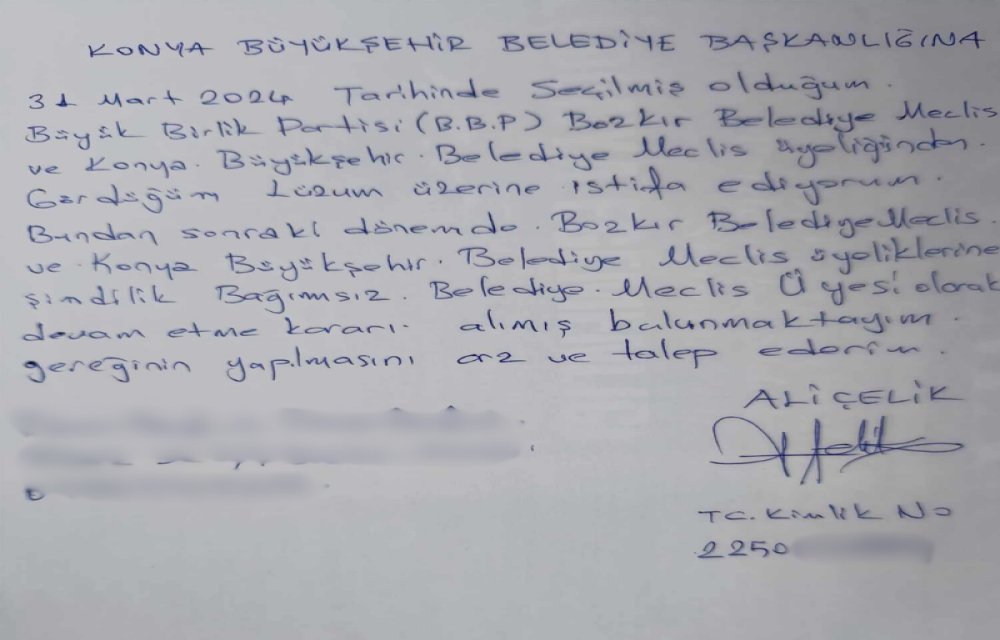 KONYA BÜYÜKŞEHİR BELEDİYE BAŞKANLIĞINA
31 Mart 2024 Tarihinde Seçilmiş olduğum.
Büyük Birlik Partisi (B.B.P) Bozkır Belediye Meclis
ve Konya. Büyükşehir. Belediye Meclis üyeliğinden.
Gördüğüm Lüzum üzerine istifa ediyorum.
Bundan sonraki dönemde. Bozkır Belediye Meclis.
ve Konya Büyükşehir. Belediye Meclis üyeliklerine
şimdilik Bağımsız. Belediye. Meclis Üyesi olarak
devam etme kararı. almış bulunmaktayım.
gereğinin yapılmasını arz ve talep ederim.
ALİ ÇELİK
TC. Kimlik No
2250